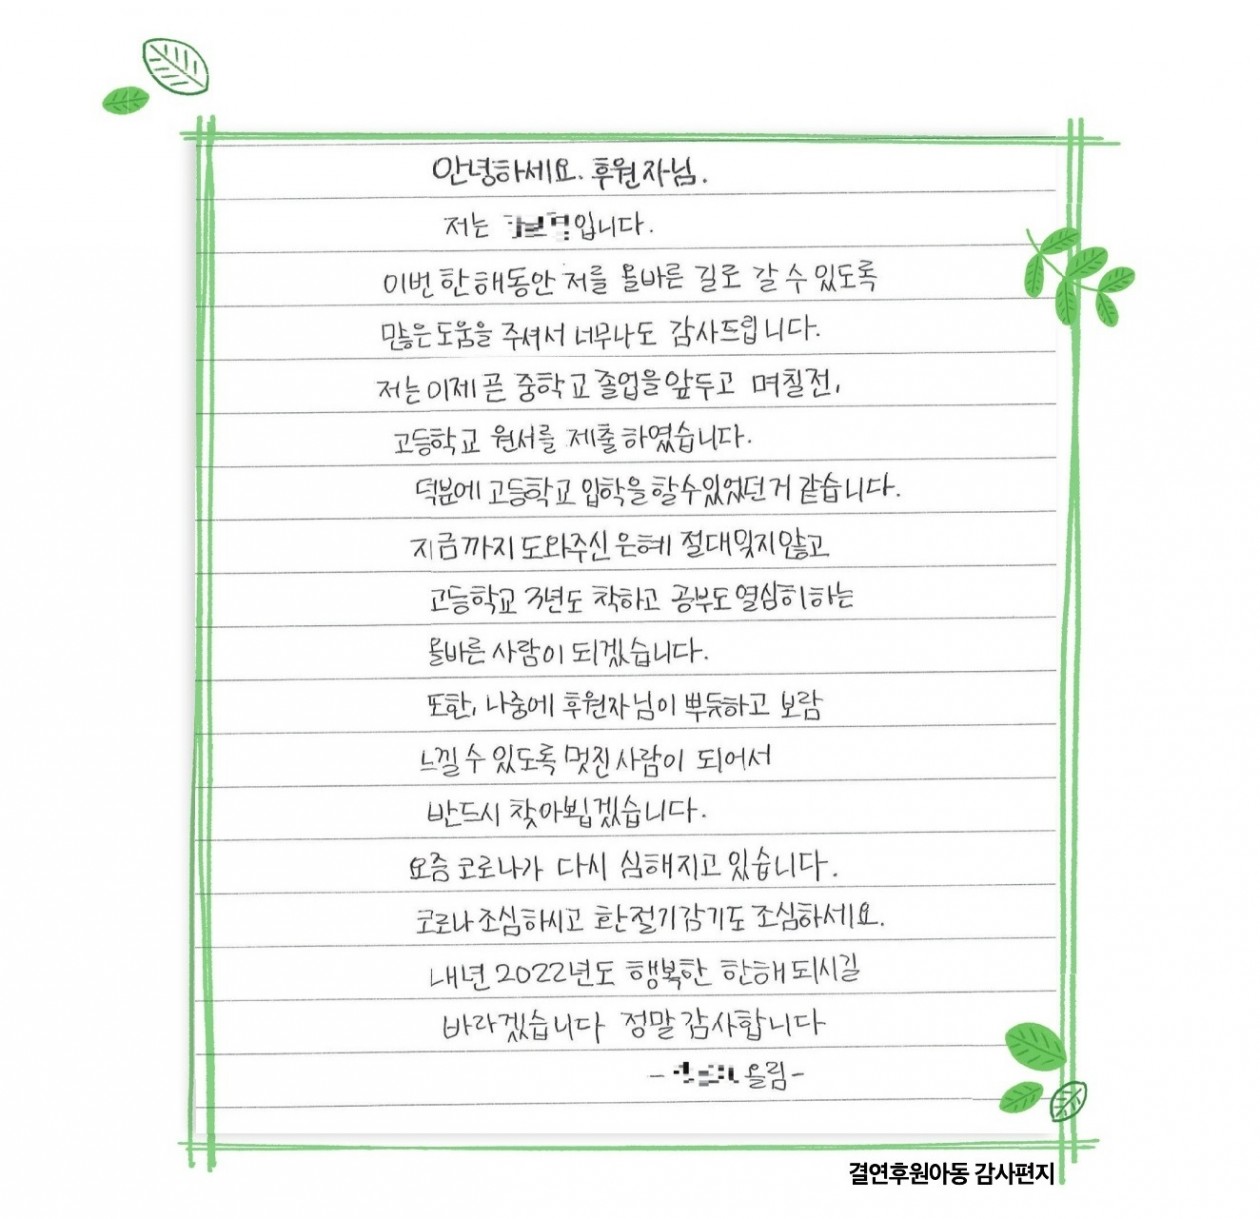 안녕하세요. 후원자님.
저는 입니다.
이번 한해동안 저를 올바른 길로 갈 수 있도록
많은 도움을 주셔서 너무나도 감사드립니다.
저는 이제 곧 중학교 졸업을 앞두고 며칠전,
고등학교 원서를 제출하였습니다.
덕분에 고등학교 입학을 할수있었던거 같습니다.
지금까지 도와주신 은혜 절대잊지않고
고등학교 3년도 착하고 공부도 열심히하는
올바른 사람이 되겠습니다.
또한, 나중에 후원자님이 뿌듯하고 보람
느낄 수 있도록 멋진사람이 되어서
반드시 찾아뵙겠습니다.
요즘 코로나가 다시 심해지고 있습니다.
코로나 조심하시고 환절기감기도 조심하세요.
내년 2022년도 행복한 한해 되시길
바라겠습니다 정말 감사합니다
- 올림-
결연후원아동 감사편지